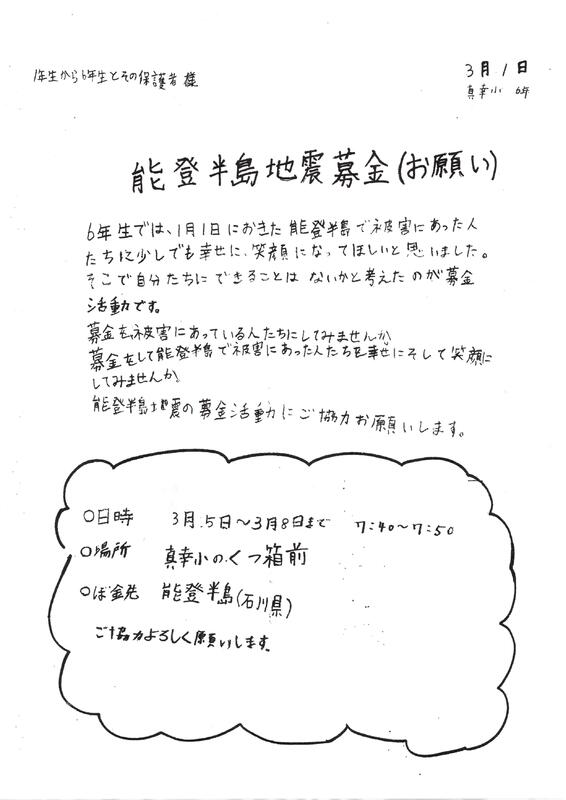 3月1日
1年生から6年生とその保護者様
真幸小 6年
能登半島地震募金(お願い)
6年生では、1月1日におきた能登半島で被害にあった人
たちに少しでも幸せに、笑顔になってほしいと思いました。
そこで自分たちにできることはないかと考えたのが募金
活動です。
募金を被害にあっている人たちにしてみませんか
募金をして能登半島で被害にあった人たちを幸せにそして笑顔に
してみませんか。
能登半島地震の募金活動にご協力お願いします。
○日時 3月.5日~3月8日まで 7:40~7:50
○場所 真幸小のくつ箱前
○ぼ金先 能登半島(石川県)
ご協力よろしく願いします。